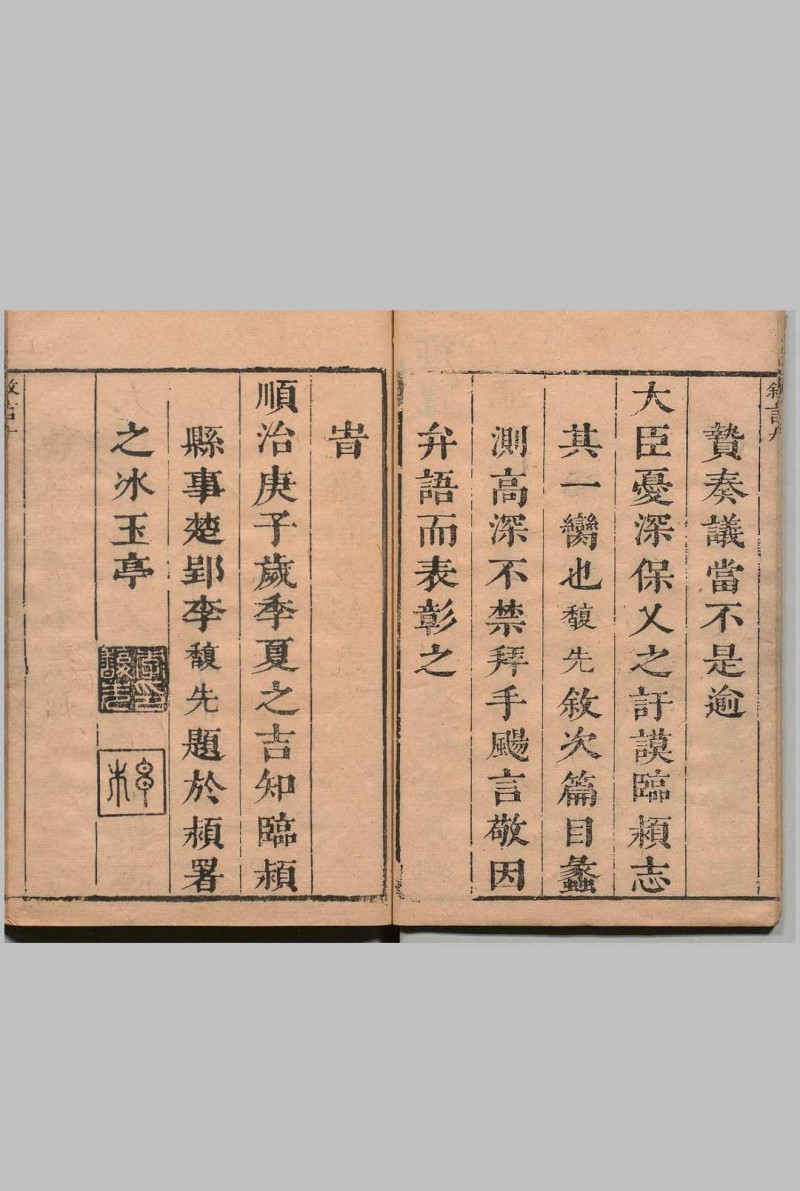 贄奏議當不是逾
大臣憂深保乂之訏謨臨潁志
其一臠也馥先敘次篇目蠡
測高深不禁拜手颺言敬因
弁語而表彰之
旹
順治庚子歲季夏之吉知臨潁
縣事楚郢李馥先題於潁署
之冰玉亭